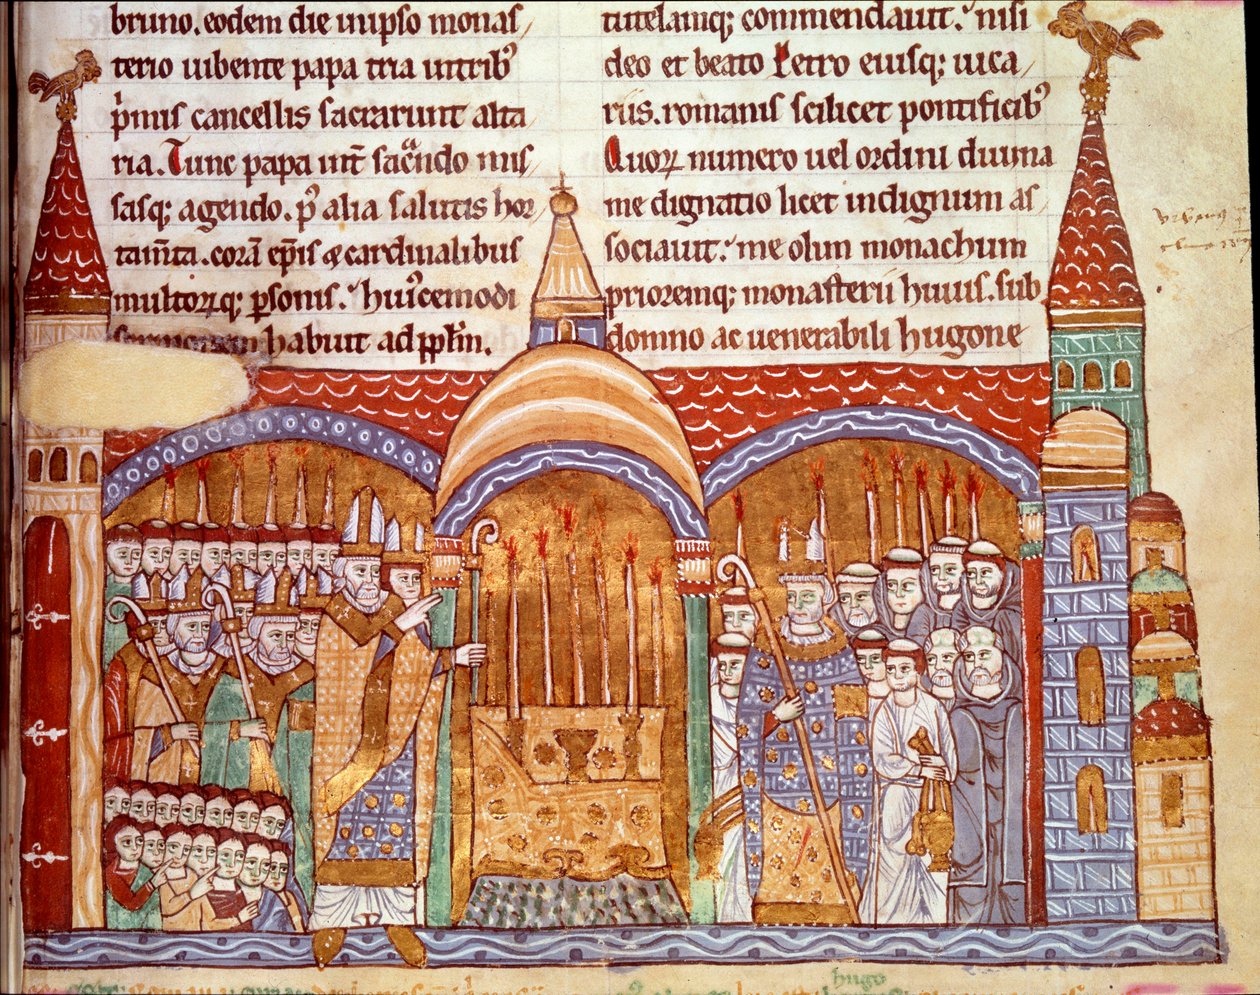 bruno. eodem die in ipso monas
terio iubente papa tria in trib⁹
p̱mis cancellis sacrarunt alta
ria. Tunc papa int̄ sac̄ndo mis
sasq; agendo. p⁹ alia salutis hor
tam̄ta. corā ep̄is ⁊ cardinalibus
multorꝫq; ꝑsonis. hui⁹cemodi
habuit ad pl̄m.
tutelamq; commendauit. nisi
deo et beato Petro eiusq; uica
riis. romanis scilicet pontificib⁹
Quoꝝ numero uel ordini diuina
me dignatio licet indignum as
sociauit: me olim monachum
prioremq; monasterii huius. sub
domno ac uenerabili hugone
hugo